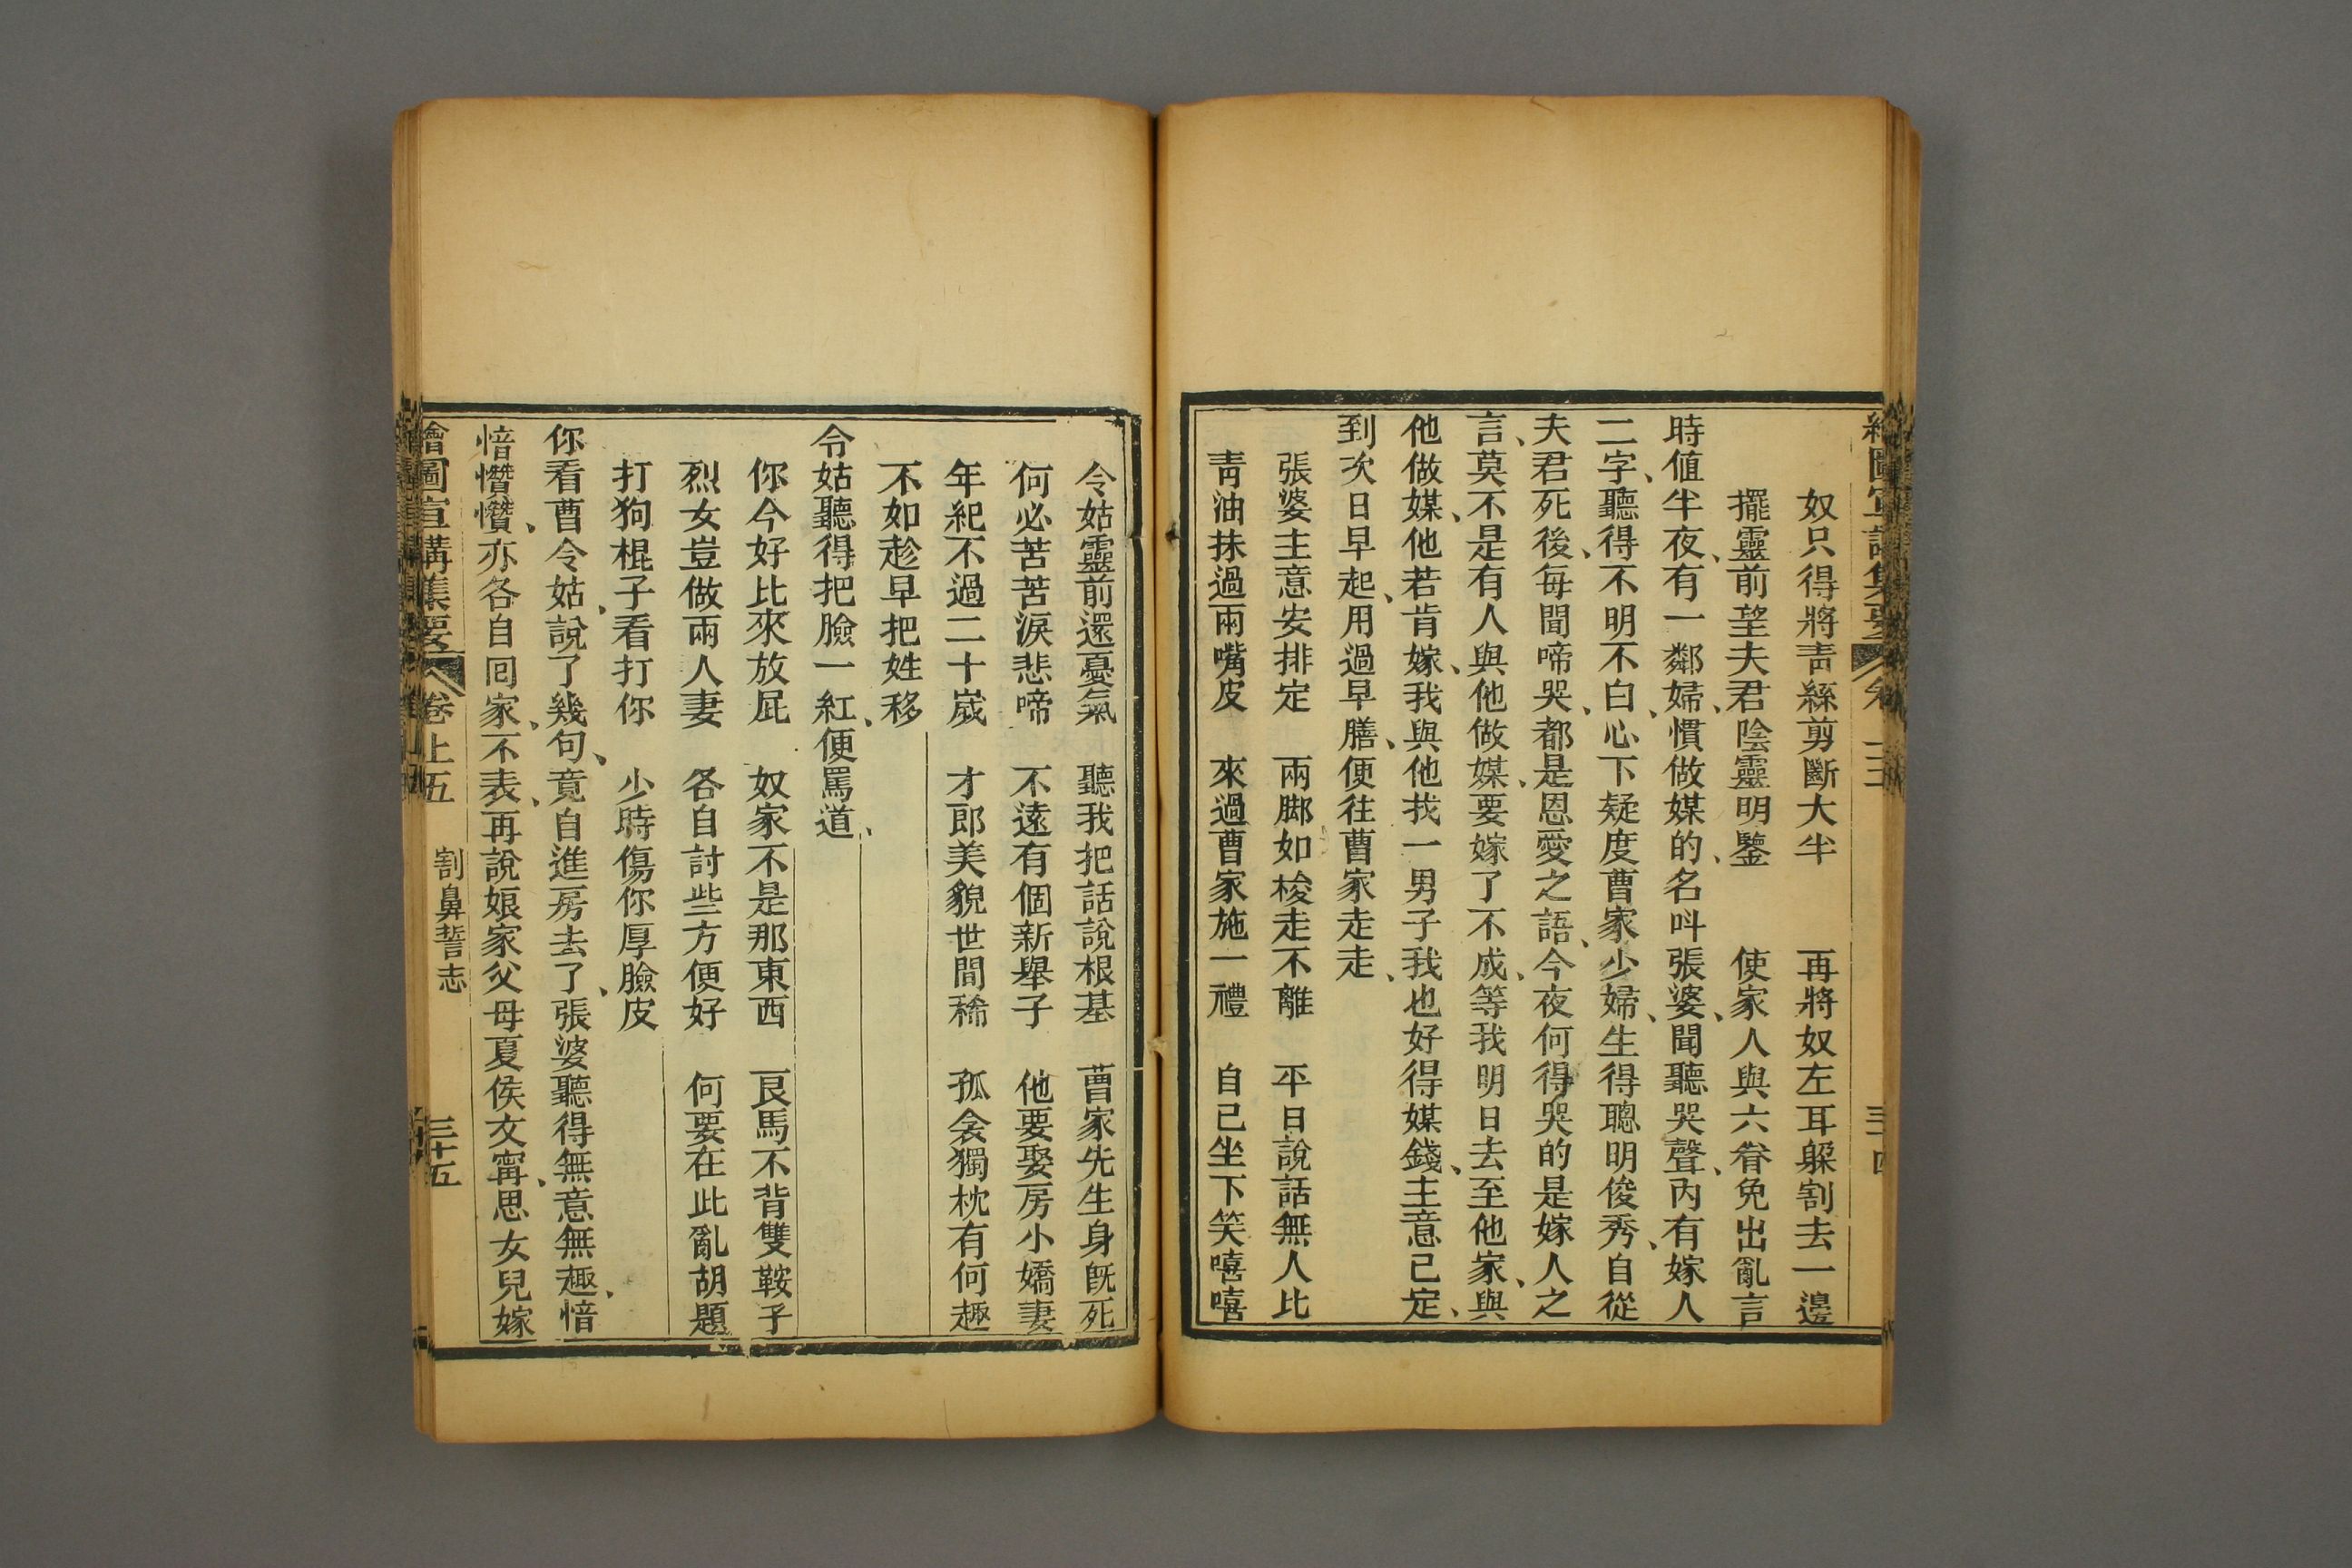 奴只得將青絲剪斷大半 再將奴左耳躲割去一邊
擺靈前望夫君陰靈明鑒 使家人與六眷免出亂言
時値半夜、有一鄰婦、慣做媒的、名呌張婆、聞聽哭聲、內有嫁人
二字、聽得不明不白、心下疑度曹家少婦、生得聰明俊秀、自從
夫君死後、每聞啼哭、都是恩愛之語、今夜何得哭的是嫁人之
言、莫不是有人與他做媒、要嫁了不成、等我明日去至他家、與
他做媒、他若肯嫁、我與他找一男子我也好得媒錢、主意已定、
到次日早起、用過早膳、便往曹家走走、
張婆主意安排定 兩脚如梭走不離 平日說話無人比
靑油抹過兩嘴皮 來過曹家施一禮 自已坐下笑嘻嘻
令姑靈前還憂氣 聽我把話說根基 曹家先生身旣死
何必苦苦淚悲啼 不遠有個新舉子 他要娶房小嬌妻
年紀不過二十嵗 才郎美貌世間稀 孤衾獨枕有何趣
不如趁早把姓移
令姑聽得把臉一紅、便罵道、
你今好比來放屁 奴家不是那東西 良馬不背雙鞍子
烈女豈做兩人妻 各自討些方便好 何要在此亂胡題
打狗棍子看打你 少時傷你厚臉皮
你看曹令姑、說了幾句、竟自進房去了、張婆聽得無意無趣、愔
愔懵懵、亦各自回家、不表、再說娘家父母夏侯文寗、思女兒嫁
繪圖宣講集要 卷上五 割鼻誓志 三十五